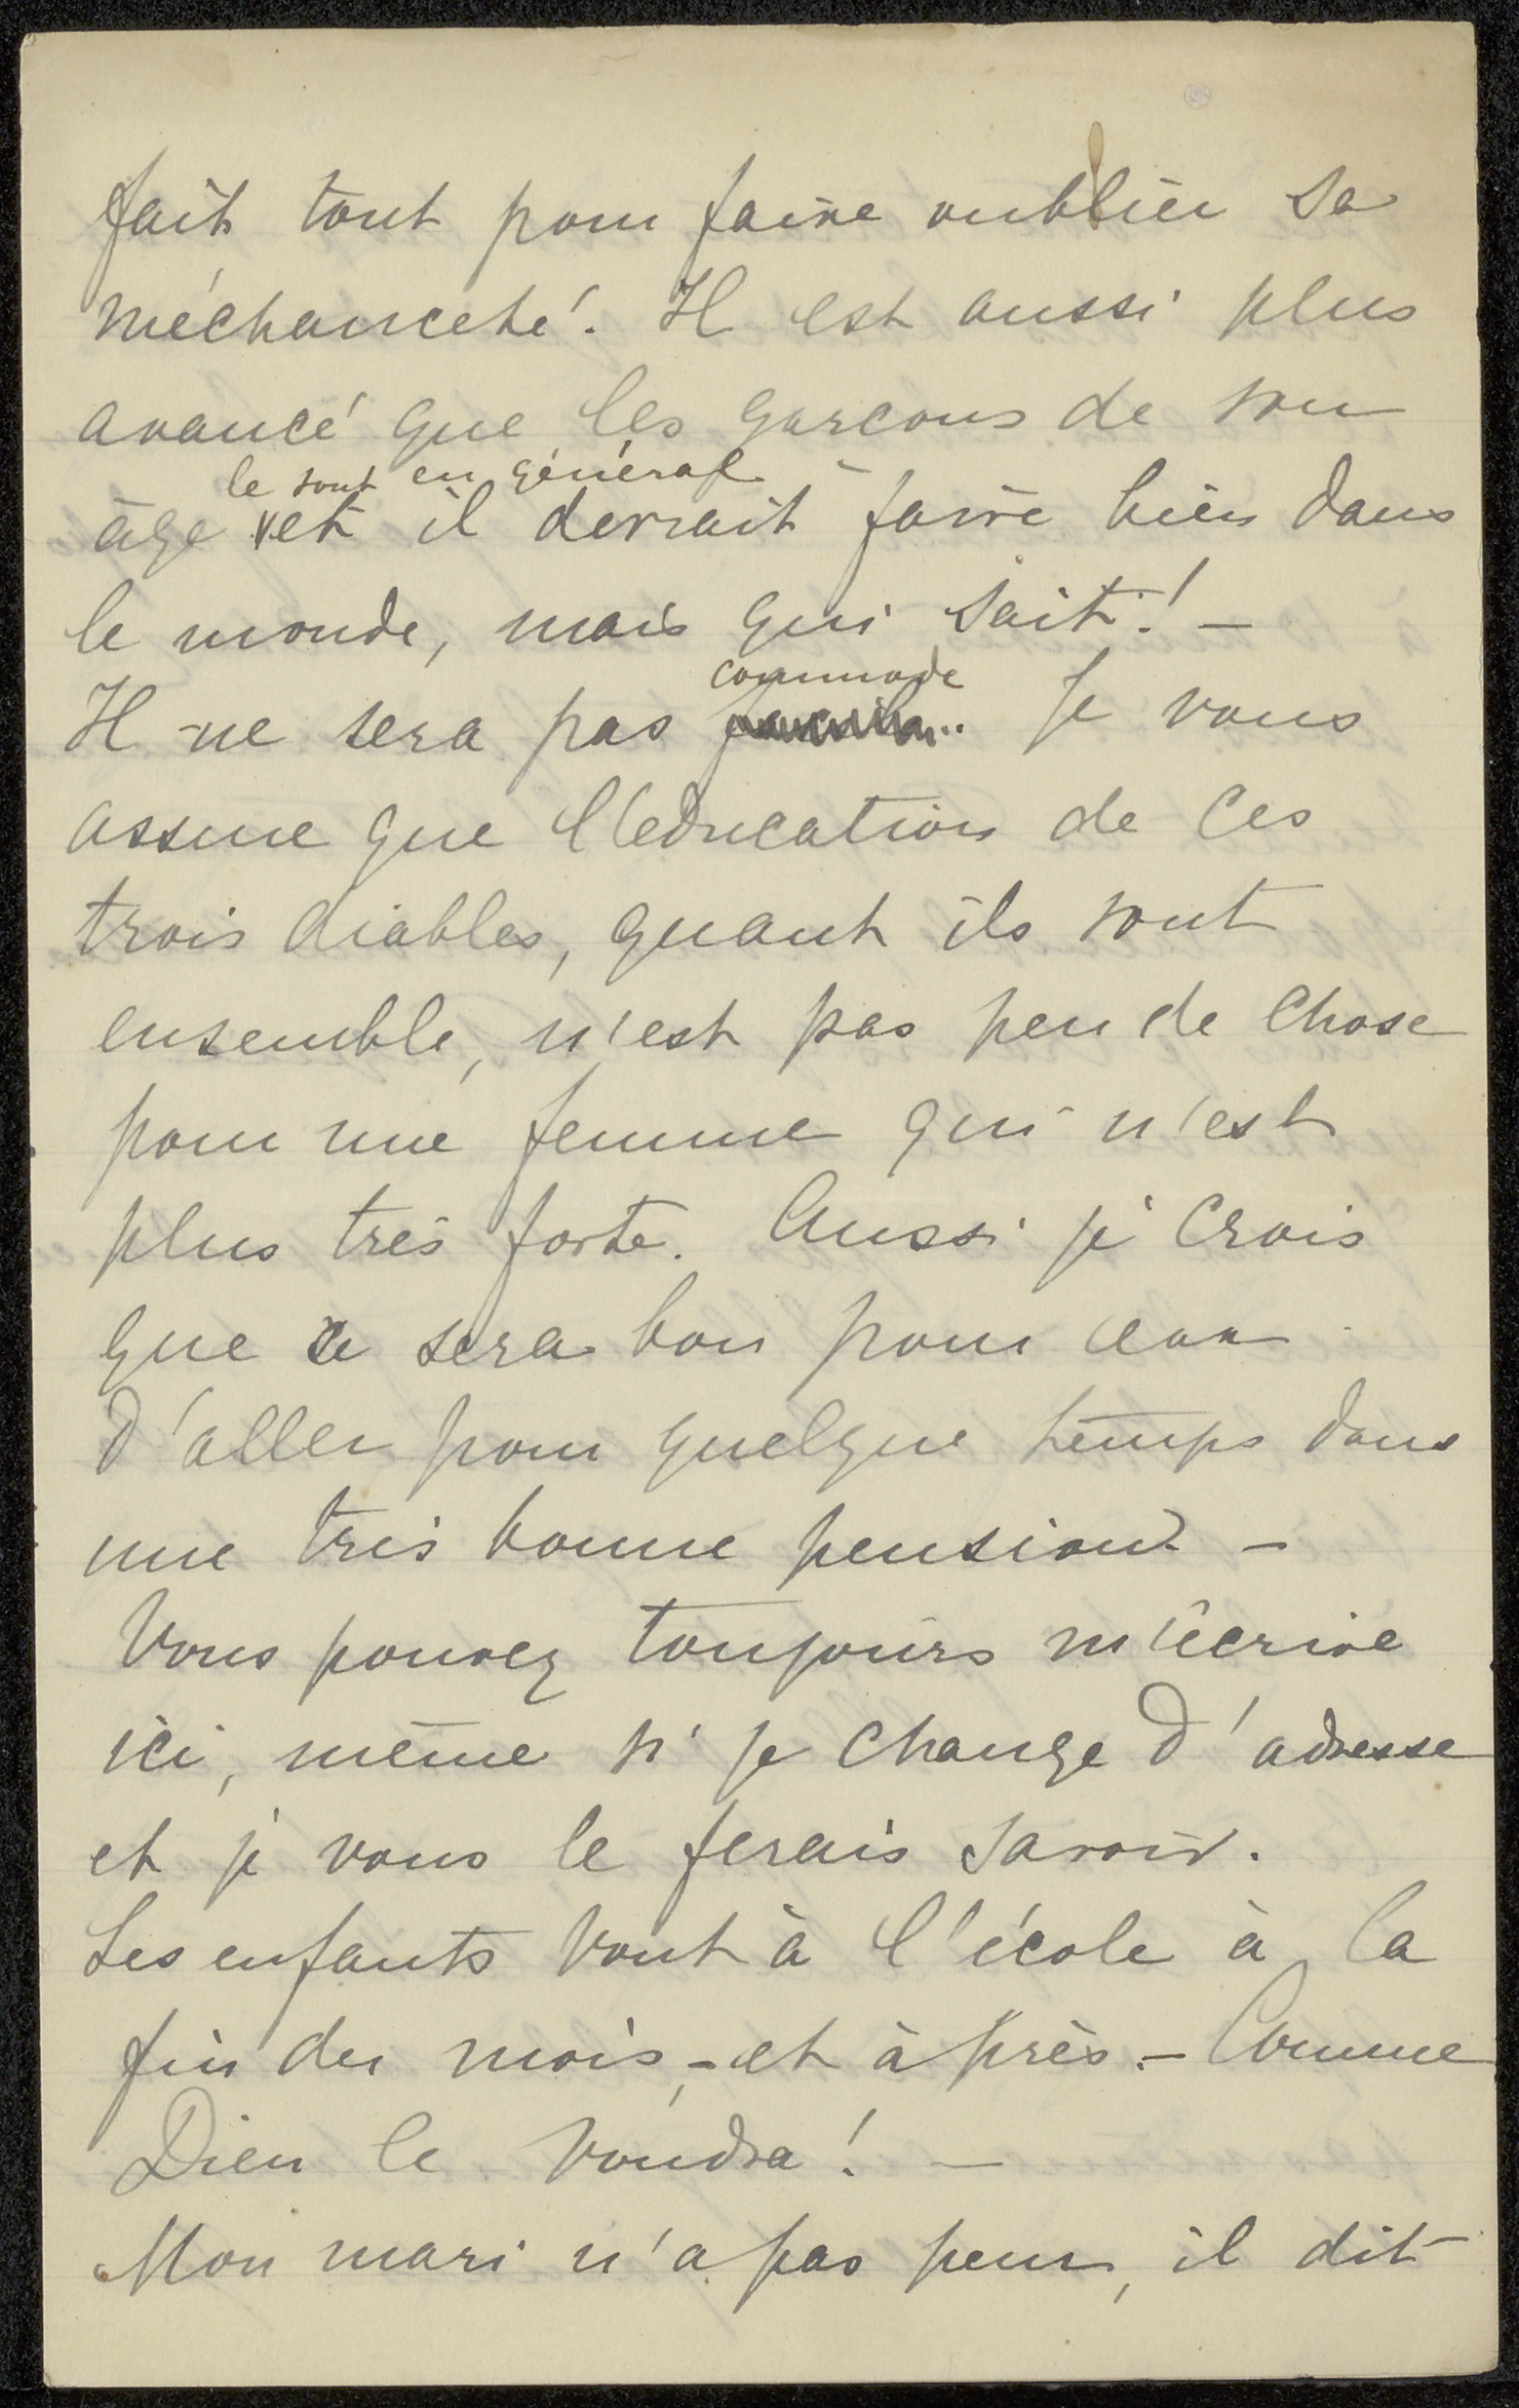 fait tout pour faire oublier sa
méchanceté. Il est aussi plus
avancé que les garcons de son
le sont en général
âge et il devrait faire bien dans
le monde, mais qui sait! –
commode
Il ne sera pas Je vous
assure que l'éducation de ces
trois diables, quant ils sont
ensemble, n'est pas peu de chose
pour une femme qui n'est
plus très forte. Aussi je crois
que ce sera bon pour eux
d'aller pour quelque temps dans
une très bonne pension. –
Vous pouvez toujours m'écrire
ici, même si je change d'adresse
et je vous le ferais savoir.
Les enfants vont à l'école à la
fin du mois, – et àprès. – Comme
Dieu le voudra! –
Mon mari n'a pas peur, il dit